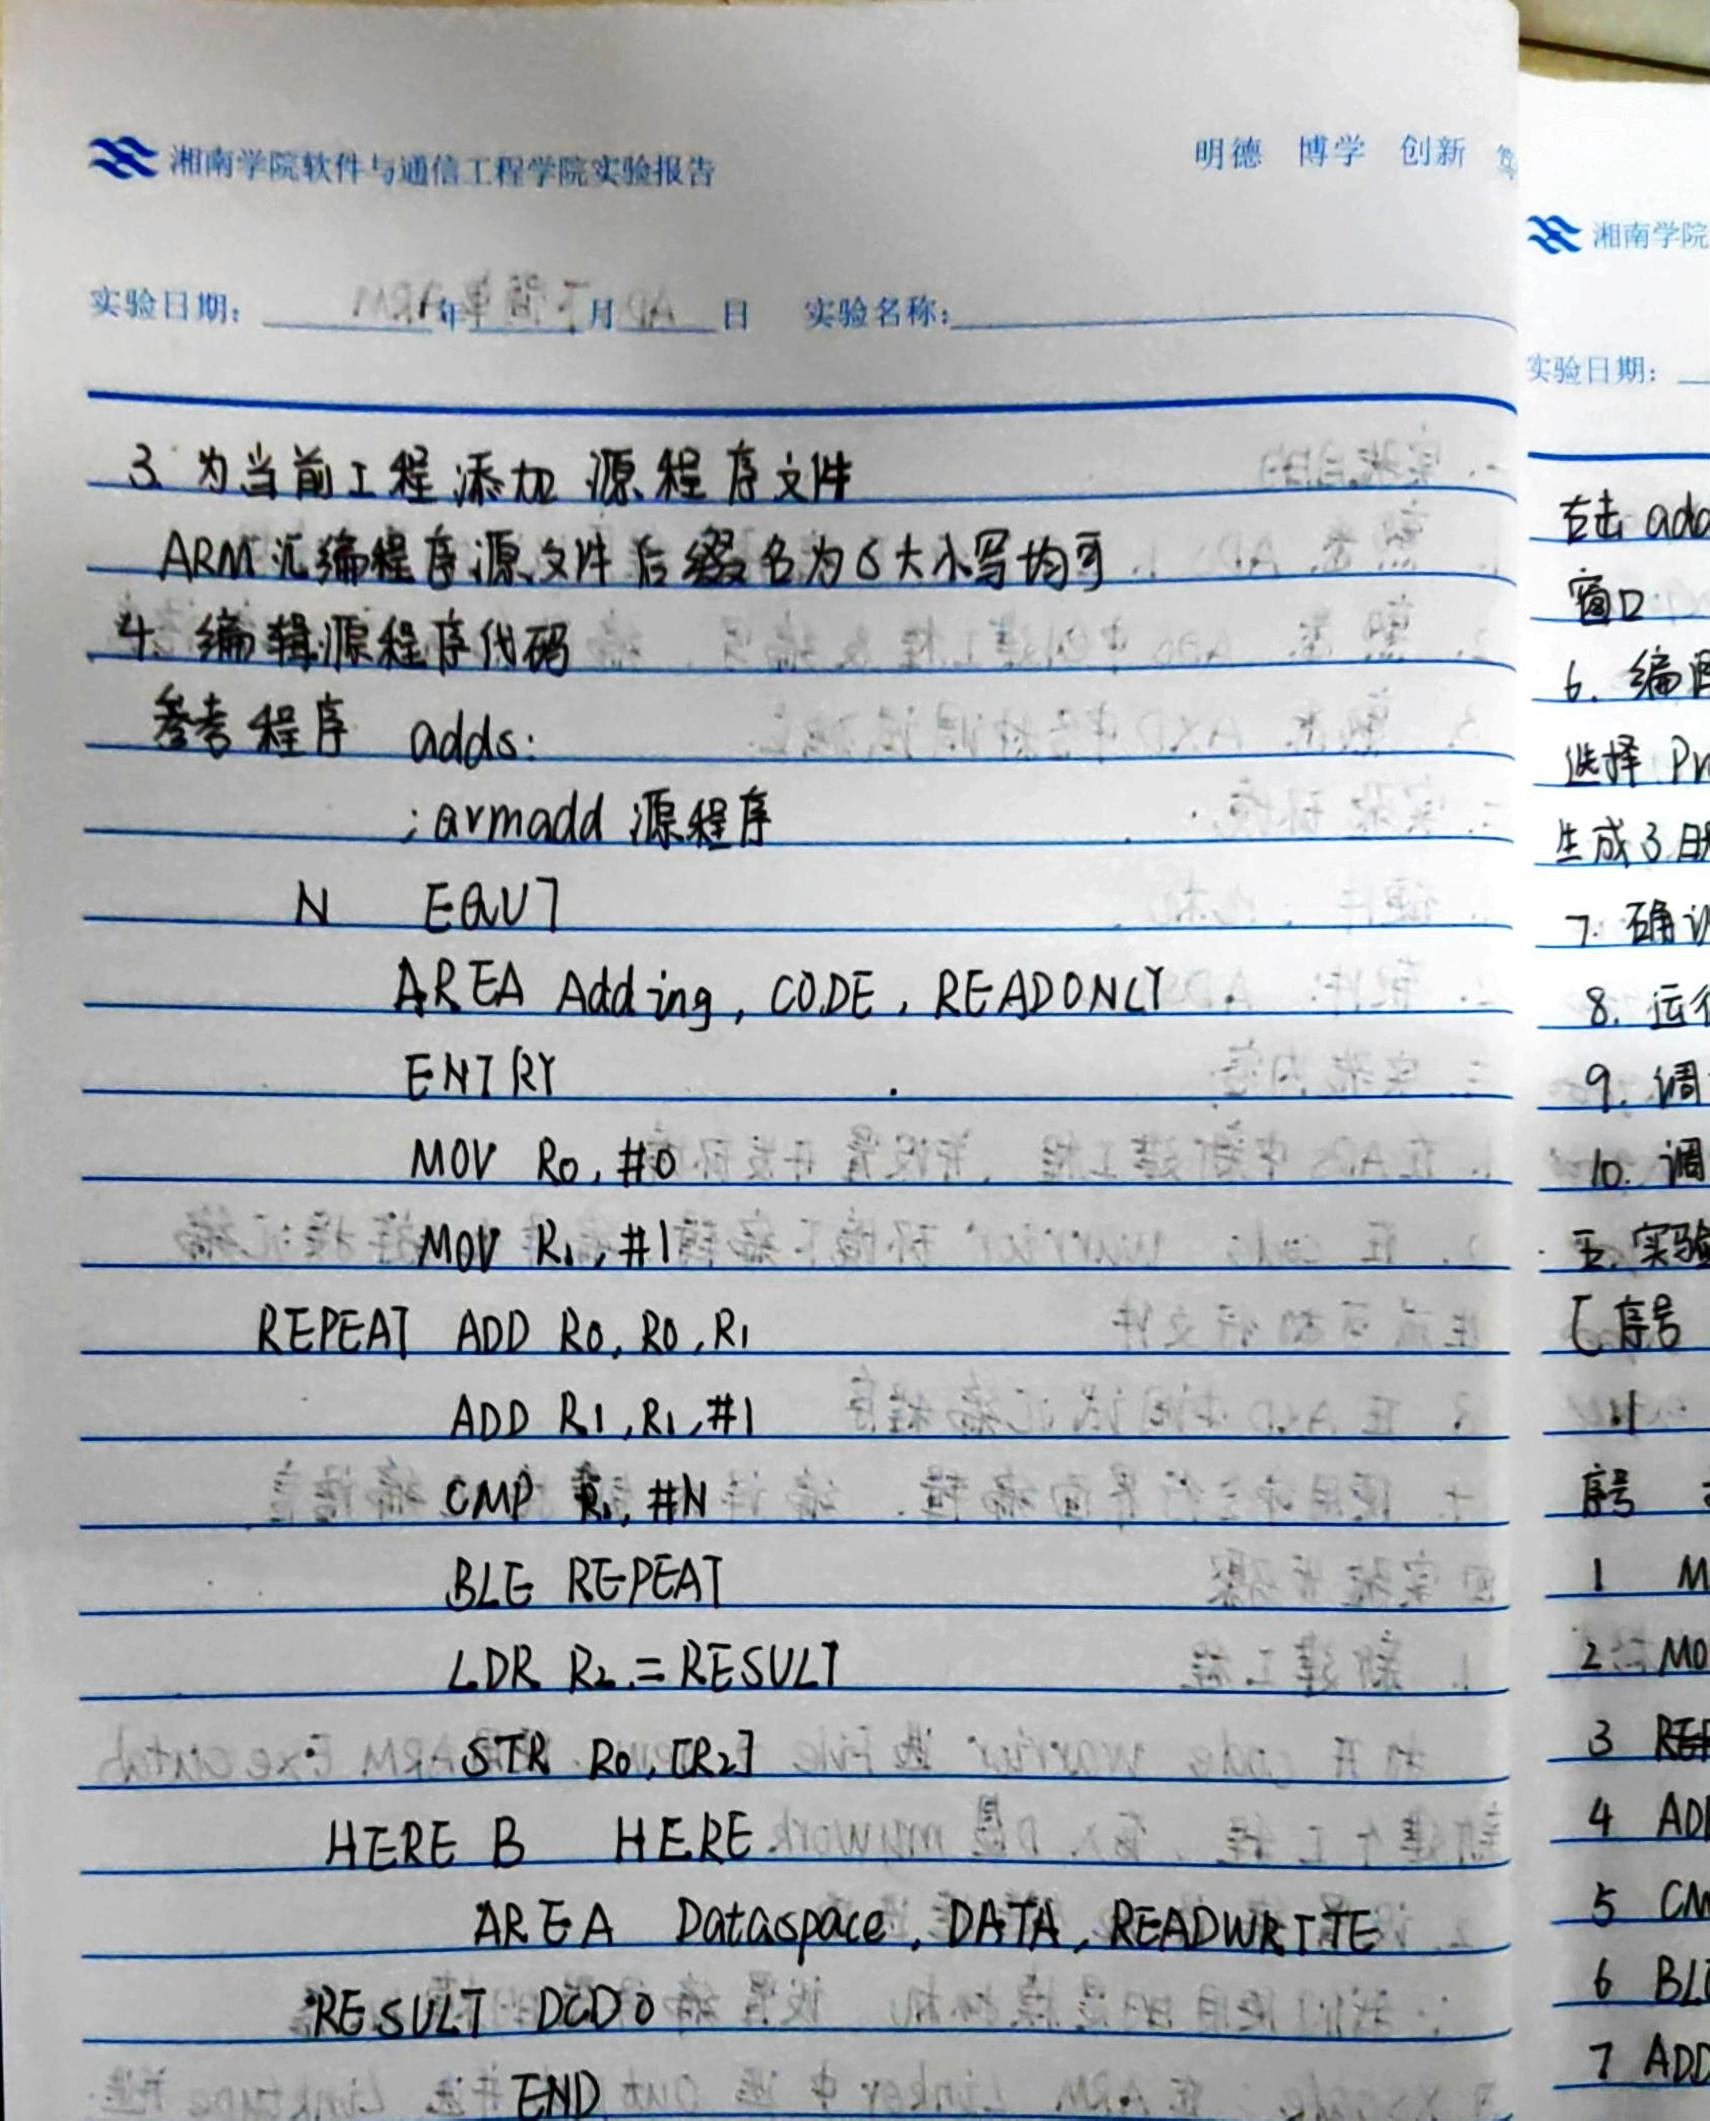 湘南学院软件与通信工程学院实验报告
明德 博学 创新
实验日期: 年 月 日 实验名称:
3. 为当前工程添加源程序文件
ARM汇编程序源文件后缀名为S大小写均可
4. 编辑源程序代码
参考程序 adds:
;armadd 源程序
N EQU 7
AREA Adding, CODE, READONLY
ENTRY
MOV R0, #0
MOV R1, #1
REPEAT ADD R0, R0, R1
ADD R1, R1, #1
CMP R1, #N
BLE REPEAT
LDR R2, =RESULT
STR R0, [R2]
HERE B HERE
AREA Dataspace, DATA, READWRITE
RESULT DCD 0
END
湘南学院
实验日期:
右击 add
窗口
6. 编
选择 Pr
生成3
7. 确
8. 运行
9. 调
10. 调
五. 实验
[序号
序号
1 M
2 MO
3
4 AD
5 CM
6 BL
7 ADD